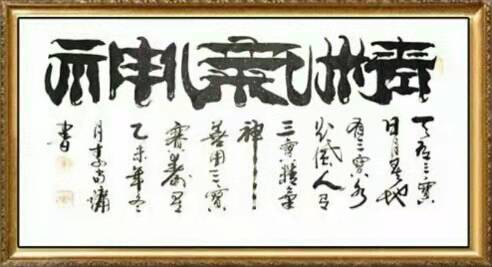 精氣神
天有三寶
日月星地
有三寶水
火風人有
三寶精氣
神
善用三寶
賽壽星
乙未年冬
月
書